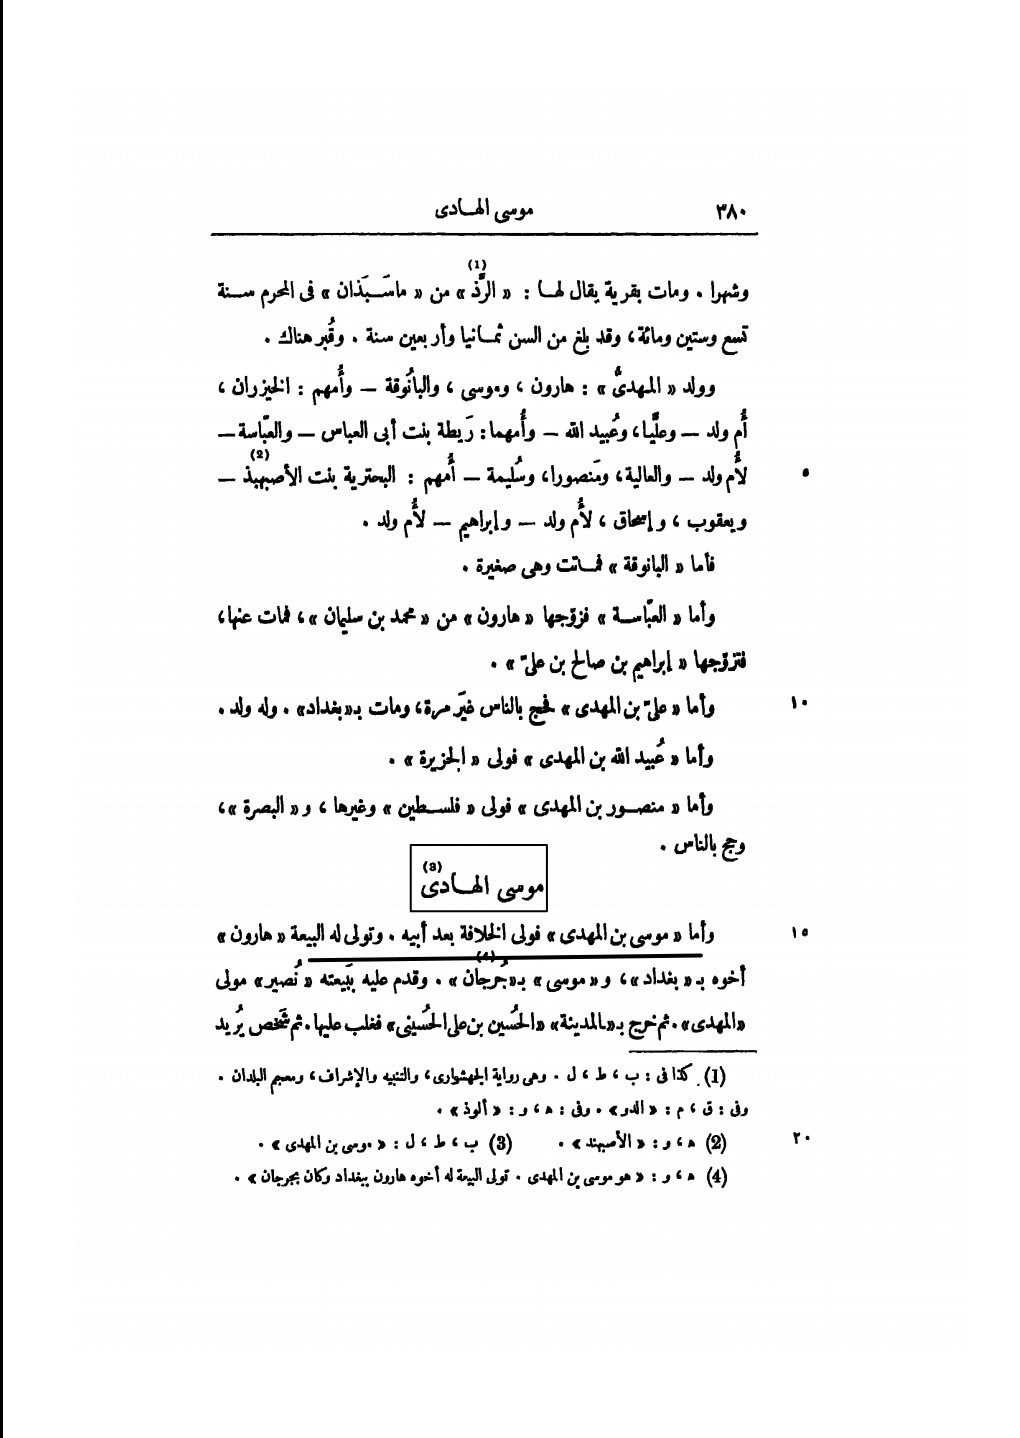 ٣٨٠ موسى الهـادى
وشهرا . ومات بقرية يقال لهـا : « الرَّذ(1) » من « ماسَـبَذان » فى المحرم سـنة
تسع وستين ومائة، وقد بلغ من السن ثمـانيا وأربعين سنة . وقُبر هناك .
وولد « المهدىُّ » : هارون ، وموسى ، والبانُوقة — وأُمهم : الخيزران ،
أُم ولد — وعليًّا، وعُبيد الله — وأُمهما: رَيطة بنت أبى العباس — والعبّاسة —
لأُم ولد — والعالية، ومَنصورا، وسُليمة — أُمهم : البحترية بنت الأصبهبذ(2) — ٥
ويعقوب ، وإسحاق ، لأُم ولد — وإبراهيم — لأُم ولد .
فأما « البانوقة » فمـاتت وهى صغيرة .
وأما « العبّاسـة » فزوّجها « هارون » من « محمد بن سليمان »، فمات عنها،
فتزوّجها « إبراهيم بن صالح بن علىّ » .
وأما « علىّ بن المهدى » فحج بالناس غيَر مرة، ومات بـ«بغداد» . وله ولد . ١٠
وأما « عُبيد الله بن المهدى » فولى « الجزيرة » .
وأما « منصـور بن المهدى » فولى « فلسـطين » وغيرها ، و « البصرة »،
وحج بالناس .
موسى الهـادى(3)
وأما « موسى بن المهدى » فولى الخلافة بعد أبيه . وتولى له البيعة « هارون » ١٥
أخوه بـ « بغداد »، و « موسى » بـ«جُرجان(4) » . وقدم عليه ببَيعته « نُصير» مولى
«المهدى» . ثم خرج بـ«المدينة» «الحُسين بن على الحُسينى» فغلب عليها. ثم شَخص يُريد
(1) كذا فى : ب ، ط ، ل . وهى رواية الجهشيارى، والتنبيه والإشراف، ومعجم البلدان .
وفى : ق ، م : « الدو » . وفى : ه ، و : « ألوذ » .
(2) ه ، و : « الأصبهند » . (3) ب ، ط ، ل : « موسى بن المهدى » . ٢٠
(4) ه ، و : « هو موسى بن المهدى . تولى البيعة له أخوه هارون ببغداد وكان بجرجان » .